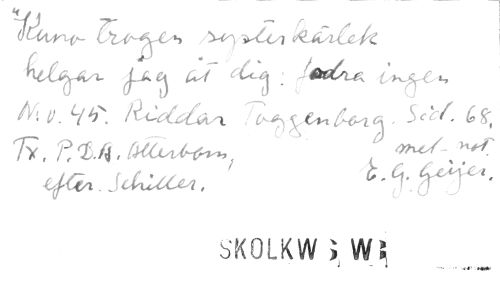 "Kuno trogen systerkärlek
helgar jag åt dig: fodra ingen
N:o. 45. Riddar Toggenborg. Sid. 68,
Tx. P.D.A. Atterbom, mel. not.
efter Schiller. E. G. Geijer.
SKOLKW